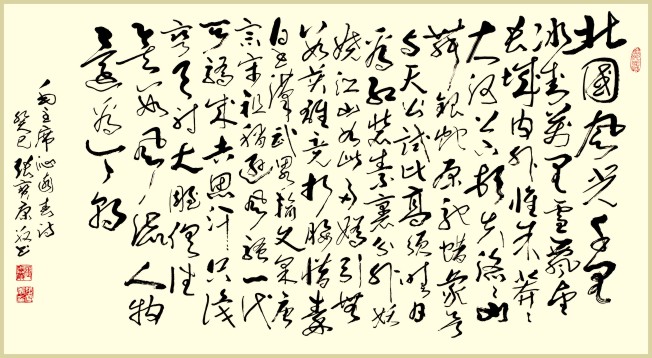 北國風光千里
冰封萬里雪飄望
長城内外惟余莽々
大河上下頓失滔々山
舞銀蛇原馳蠟象欲
与天公試比高須晴日
看紅裝素裹分外妖
嬈江山如此多嬌引無
數英雄競折腰惜秦
皇漢武略輸文采唐
宗宋祖稍遜風騷一代
天驕成吉思汗只識
彎弓射大雕俱往
矣數風流人物
還看今朝
毛主席沁園春詩
癸巳 張 康 書